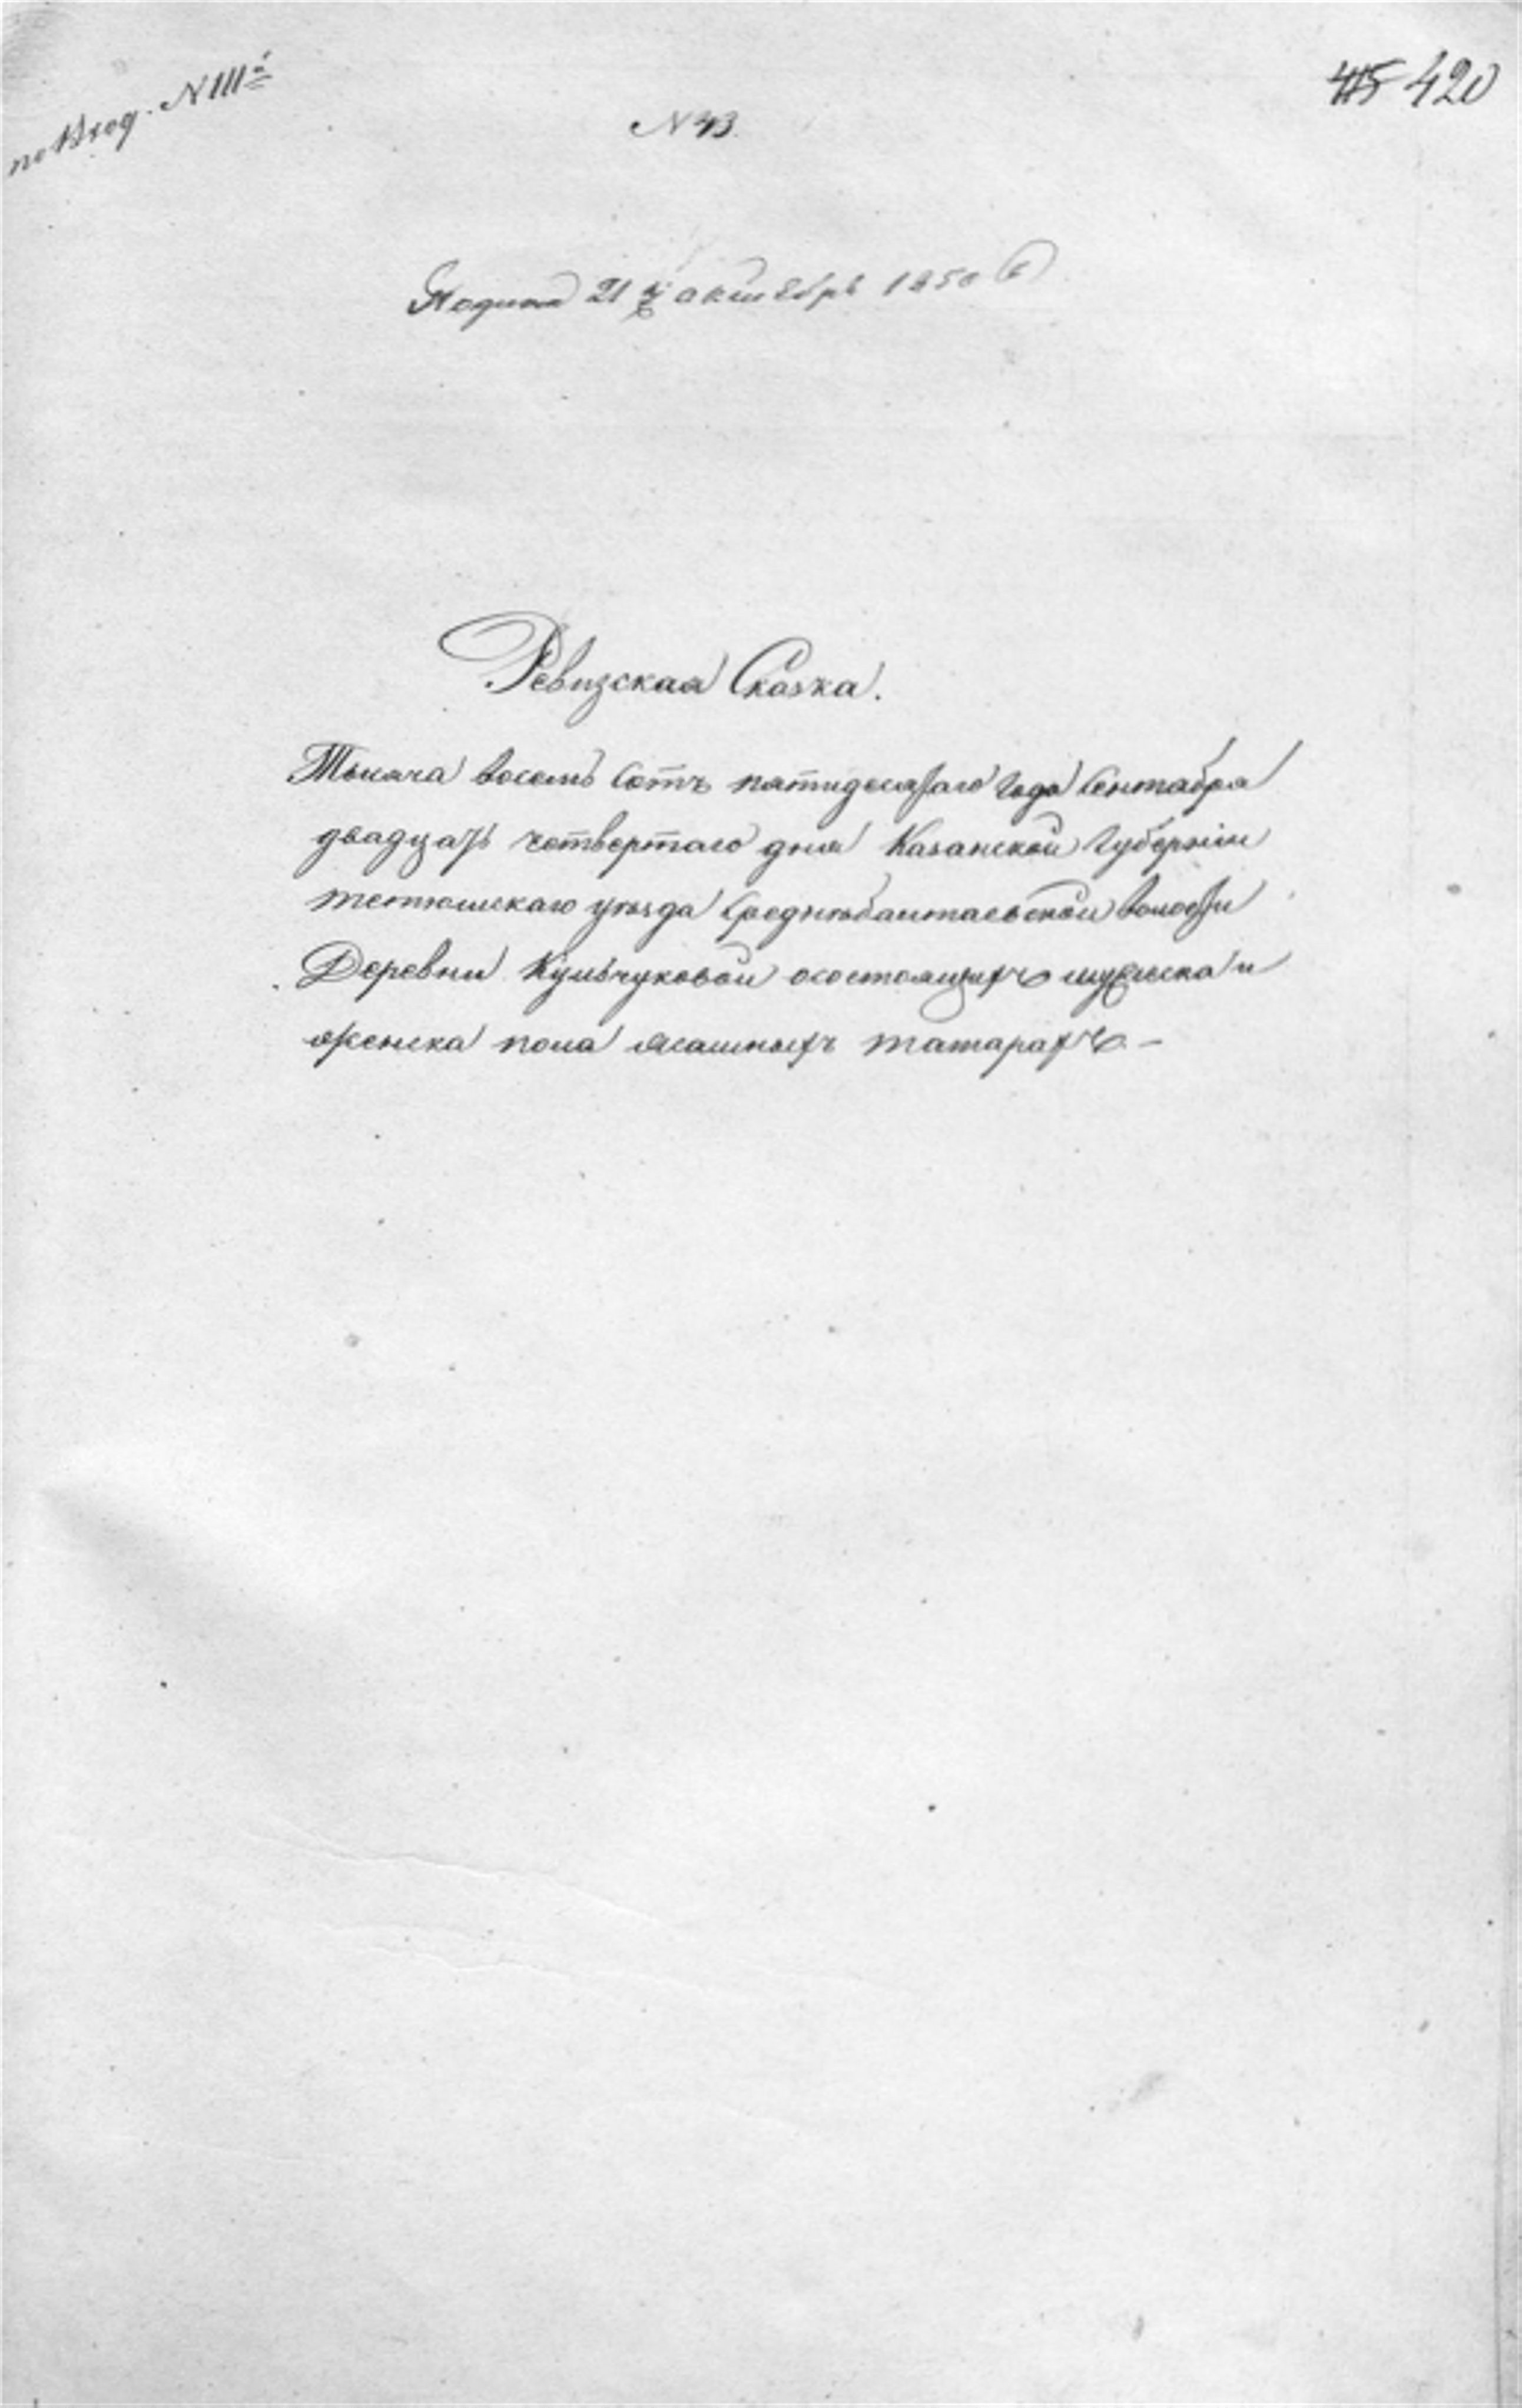 по Вход. № 111й
415 420
№ 43
Подана 21 октебрь 1850
Ревизская Сказка.
Тысяча восемь сотъ пятидесятаго года Сентября
двадцать четвертаго дня Казанской Губерніи
тетюшскаго уѣзда среднѣбалтаевской волости
Деревни Кульчуковой о состоящихъ мужеска и
женска пола ясашныхъ татарахъ. –